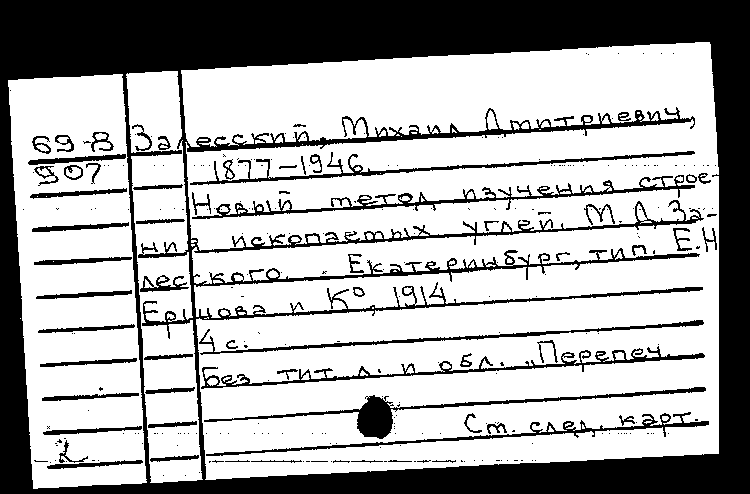 69-8 Залесский, Михаил Дмитриевич,
907 1877-1946.
Новый метод изучения строе-
ния ископаемых углей. М.Д. За-
лесского. Екатеринбург, тип. Е.Н
Ершова и К°, 1914.
4 с.
Без тит. л. и обл. „Перепеч.
См. след. карт.
2